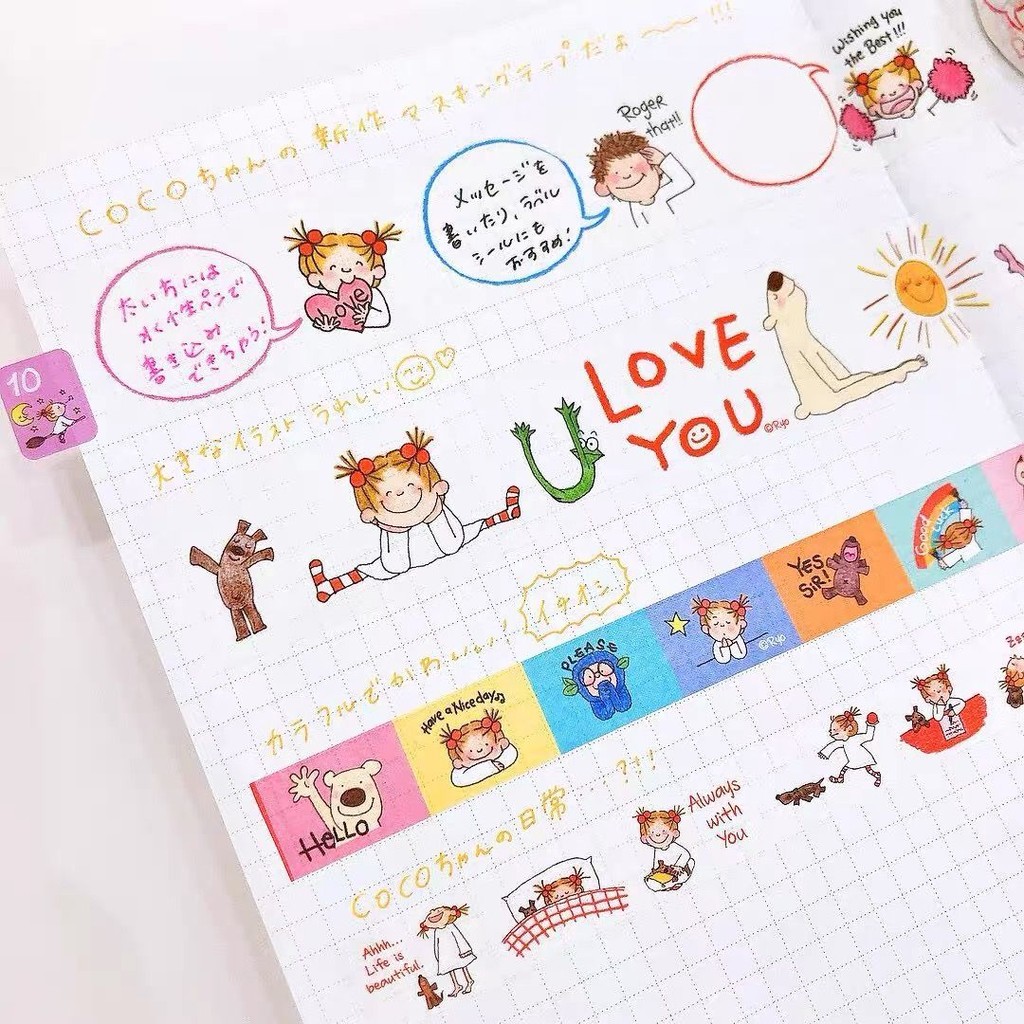 COCOちゃんの新作マスキングテープだよ〜〜!!!
Wishing you
the Best!!!
Roger
that!!
メッセージを
書いたり、ラベル
シールにも
おすすめ!
たいちには
水性ペンで
書き込み
できちゃう!
Love
10
大きなイラスト うれしい
LOVE
YOU
©Ryo
U
カラフルでかわいい!
イチオシ
HELLO
Have a Nice day
PLEASE
©Ryo
YES
SIR!
Good
Luck
COCOちゃんの日常
Ahhh...
Life is
beautiful.
Always
with
You